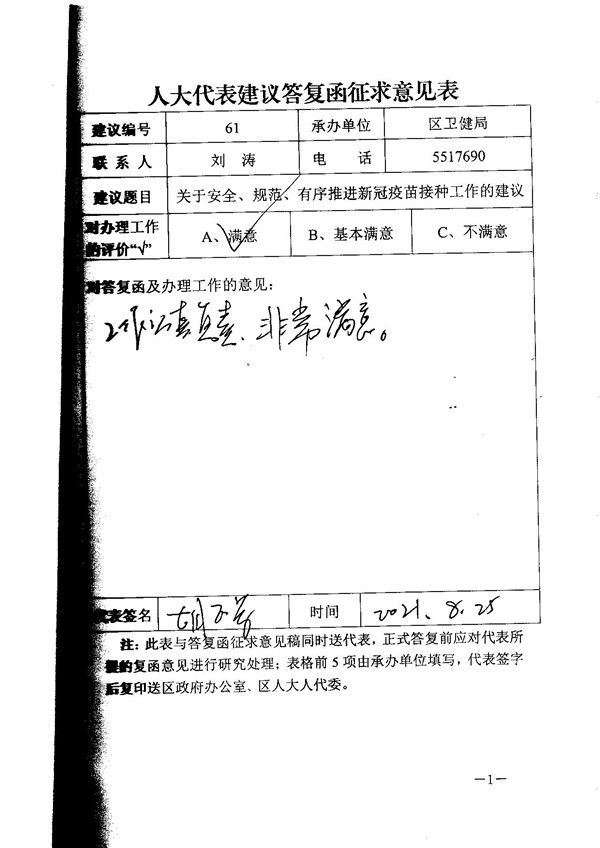 人大代表建议答复函征求意见表
建议编号 61 承办单位 区卫健局
联系人 刘涛 电话 5517690
建议题目 关于安全、规范、有序推进新冠疫苗接种工作的建议
对办理工作
的评价“√” A、满意 B、基本满意 C、不满意
对答复函及办理工作的意见：
工作认真负责、非常满意。
代表签名 时间 2021、8.25
注：此表与答复函征求意见稿同时送代表，正式答复前应对代表所
提的复函意见进行研究处理；表格前 5 项由承办单位填写，代表签字
后复印送区政府办公室、区人大人代委。
—1—